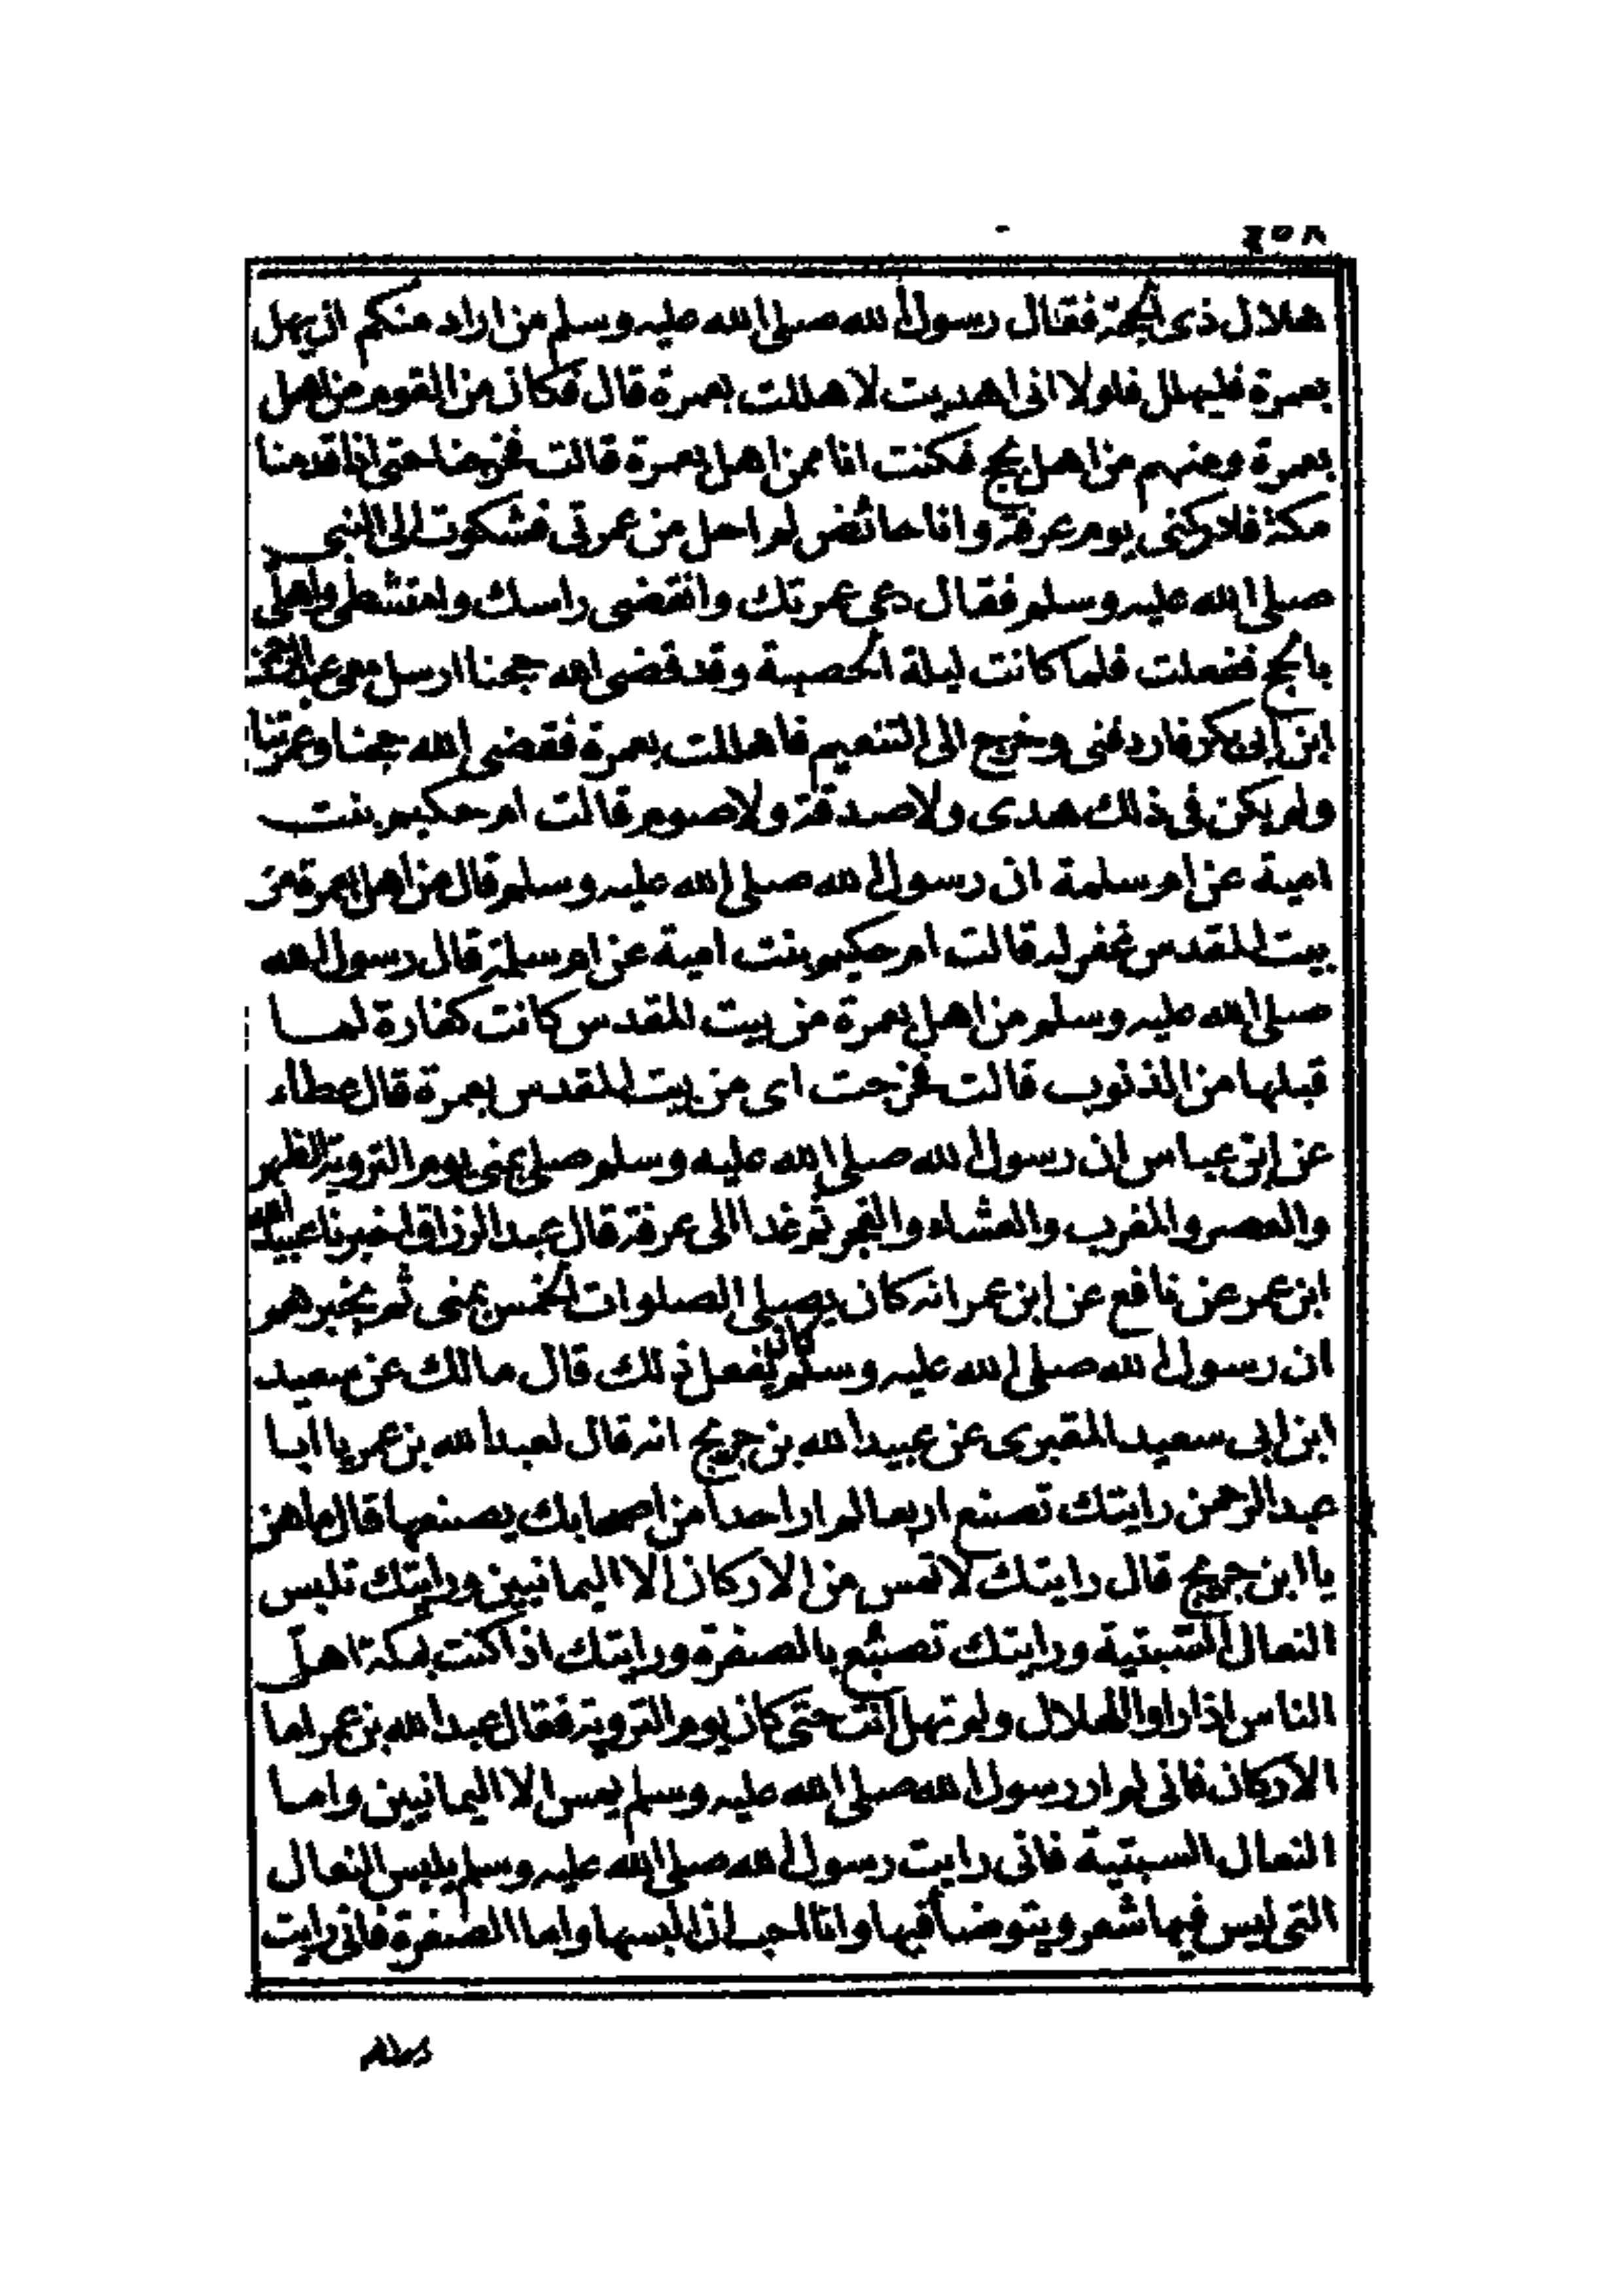 ٤٥٨
هلال ذى الحجة فقال رسول الله صلى الله عليه وسلم من اراد منكم ان يهل
بعمرة فليهلل فلولا انى اهديت لاهللت بعمرة قال فكان من القوم من اهل
بعمرة ومنهم من اهل بحج فكنت انا ممن اهل بعمرة قالت فخرجنا حتى اذا قدمنا
مكة فادركنى يوم عرفة وانا حائض لم احل من عمرتى فشكوت الى النبى
صلى الله عليه وسلم فقال دعى عمرتك وانقضى راسك وامتشطى واهلى
بالحج ففعلت فلما كانت ليلة الحصبة وقد قضى الله حجنا ارسل معى عبد الرحمن
ابن ابى بكر فاردفنى وخرج الى التنعيم فاهللت بعمرة فقضى الله حجنا وعمرتنا
ولم يكن فى ذلك هدى ولا صدقة ولا صوم قالت ام حكيم بنت
امية عن ام سلمة ان رسول الله صلى الله عليه وسلم قال من اهل بعمرة من
بيت المقدس غفر له قالت ام حكيم بنت امية عن ام سلمة قال رسول الله
صلى الله عليه وسلم من اهل بعمرة من بيت المقدس كانت كفارة لما
قبلها من الذنوب قالت فخرجت اى من بيت المقدس بعمرة قال عطاء
عن ابن عباس ان رسول الله صلى الله عليه وسلم صلى بمنى يوم التروية الظهر
والعصر والمغرب والعشاء والفجر ثم غدا الى عرفة قال عبد الرزاق اخبرنا عبيد الله
ابن عمر عن نافع عن ابن عمر انه كان يصلى الصلوات الخمس بمنى ثم يخبرهم
ان رسول الله صلى الله عليه وسلم كان يفعل ذلك قال مالك عن سعيد
ابن ابى سعيد المقبرى عن عبيد الله بن جريج انه قال لعبد الله بن عمر يا ابا
عبد الرحمن رايتك تصنع اربعا لم ار احدا من اصحابك يصنعها قال ما هن
يا ابن جريج قال رايتك لا تمس من الاركان الا اليمانيين ورايتك تلبس
النعال السبتية ورايتك تصبغ بالصفرة ورايتك اذا كنت بمكة اهل
الناس اذا راوا الهلال ولم تهل انت حتى كان يوم التروية فقال عبد الله بن عمر اما
الاركان فانى لم ار رسول الله صلى الله عليه وسلم يمس الا اليمانيين واما
النعال السبتية فانى رايت رسول الله صلى الله عليه وسلم يلبس النعال
التى ليس فيها شعر ويتوضأ فيها وانا احب ان البسها واما الصفرة فانى رايت